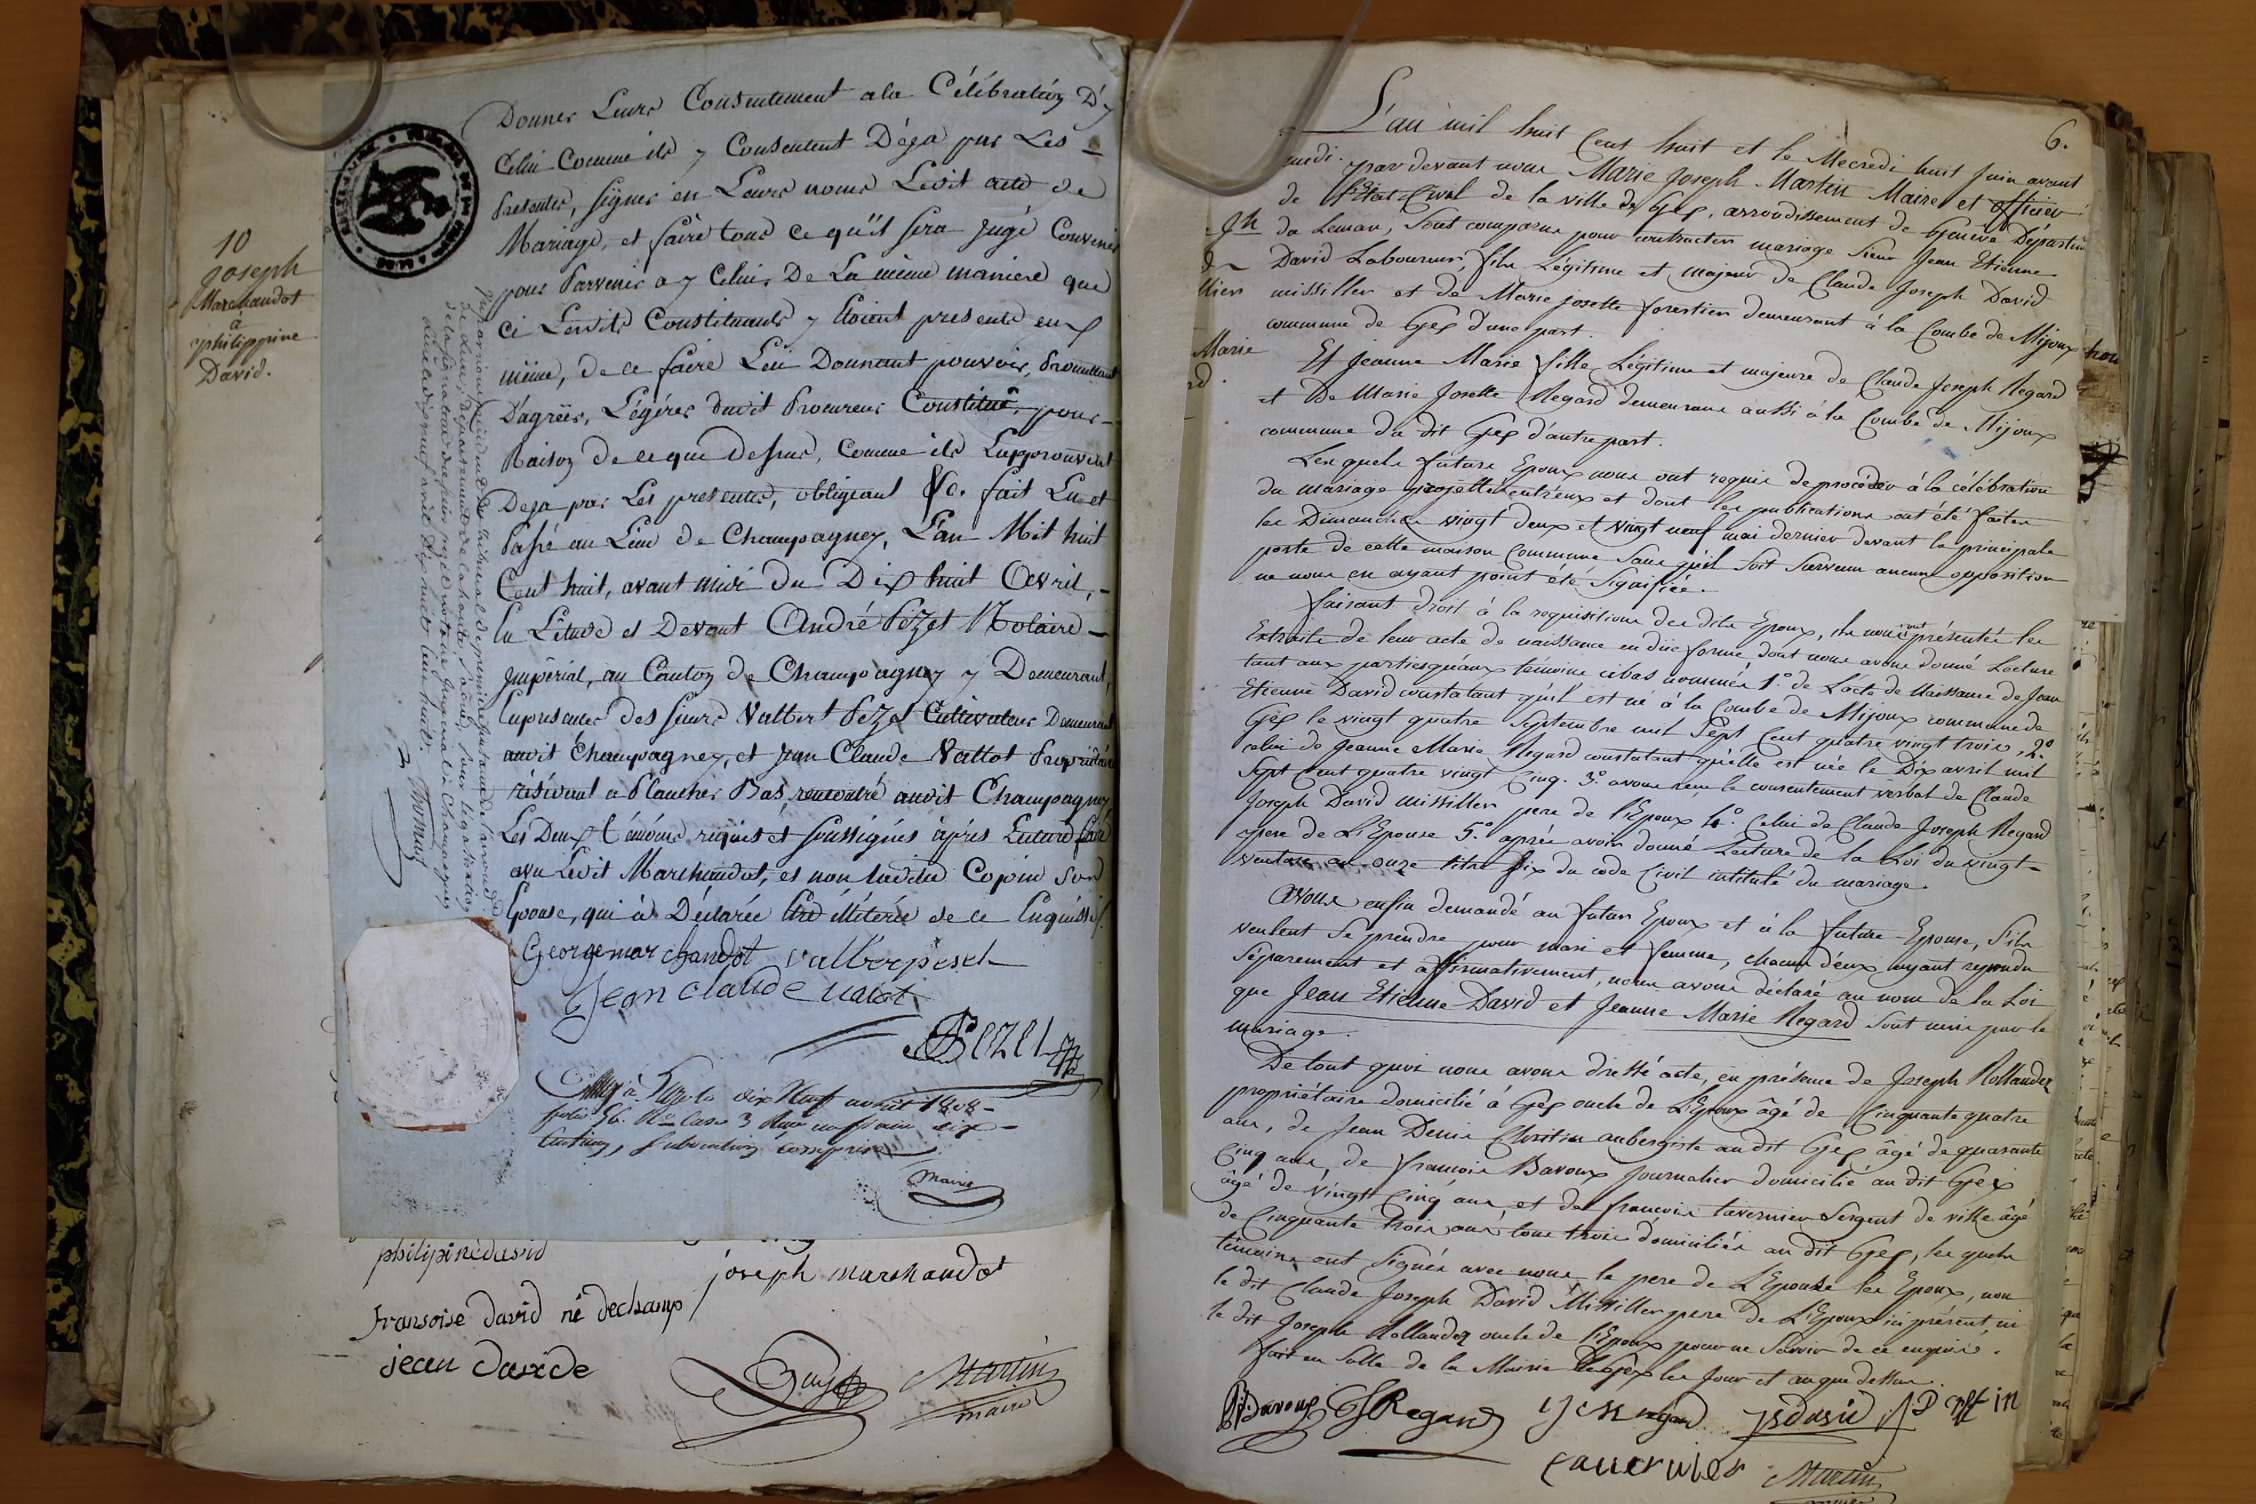 10
Joseph
Marchandot
à
philippine
David.
Donner Leurs Consentement a la Célébration D'y
Celui Comme ils y Consentent Déja par Les
Presentes, signer en Leurs noms Ledit acte de
Mariage, et faire tous ce qu'il sera jugé Convenir
pour Parvenir a y Celui, De La même maniere que
Ci Lesdits Constituants y étoient presents eux
même, de ce faire Lui Donnent pouvoir, Promettant
D'agréer, Légérer dudit Procureur Constitué, pour
Raison de ce que Dessus, Comme ils L'approuvent
Deja par Les presentes, obligeant &c. fait Lu et
Passé au Lieu de Champagney, L'an Mil huit
Cent huit, avant midi du Dix huit Avril,
En L'étude et Devant André Pezet Notaire
Impérial, au Canton de Champagney y Demeurant,
En presences des sieurs Valbert Pezet Cultivateur Demeurant
audit Champagney, et Jean Claude Vallot Propriétaire
résidant a Plancher Bas, rencontré audit Champagney
Les Deux témoins requis et soussignés après Lecture faite
avec Ledit Marchandot, et non ladite Copin son
Epouse, qui à Déclarée être illéterée de ce Enquise
George marchandot valberpeset
Jean claude valot
Pezet
dix Neuf avril 1808
folio 56. case 3
subvention comprise
Mairie
Thomas
philipine david
joseph marchandot
fransoise david né dechamp
jean davide
Martin
maire
6.
L'an mil huit Cent huit et le Mecredi huit Juin avant
midi. par devant nous Marie Joseph Martin Maire et officier
de l'Etat Civil de la ville de Gex, arrondissement de Genève Département
du Leman, sont comparus pour contracter mariage Sieur Jean Etienne
David Laboureur, fils Légitime et majeur de Claude Joseph David
missillier et de Marie josette forestier demeurant à la Combe de Mijoux
commune de Gex d'une part.
Et Jeanne Marie fille Légitime et majeure de Claude Joseph Regard
et De Marie Josette Regard demeurans aussi à la Combe de Mijoux
commune du dit Gex d'autre part.
Lesquels futurs Epoux nous ont requis de procéder à la célébration
du mariage projetté entr'eux et dont les publications ont été faites
les Dimanches vingt deux et vingt neuf mai dernier devant la principale
porte de cette maison Commune sans qu'il soit survenu aucune opposition
ne nous en ayant point été Signifiée.
faisant droit à la requisitions des dits Epoux, ils nous ont présentés les
Extraits de leur acte de naissance en düe forme dont nous avons donné Lecture
tant aux parties qu'aux témoins cibas nommés 1.° de L'acte de Naissance de Jean
Etienne David constatant qu'il est né à la Combe de Mijoux commune de
Gex le vingt quatre Septembre mil Sept Cent quatre vingt trois, 2.°
celui de Jeanne Marie Regard constatant qu'elle est née le Dix avril mil
Sept Cent quatre vingt Cinq. 3.° avons reçu le consentement verbal de Claude
Joseph David missillier pere de l'Epoux 4.° Celui de Claude Joseph Regard
pere de L'Epouse 5.° après avoir donné Lecture de la Loi du vingt
ventose an onze titre Six du code Civil intitulé du mariage.
avons enfin demandé au futur Epoux et à la future Epouse, s'ils
veulent se prendre pour mari et femme, chacun d'eux ayant repondu
Séparement et affirmativement, nous avons déclaré au nom de la Loi
que Jean Etienne David et Jeanne Marie Regard sont unis par le
mariage.
De tout quoi nous avons dressé acte, en présence de Joseph Rollandez
propriétaire domicilié à Gex oncle de L'Epoux âgé de Cinquante quatre
ans, de Jean Denis Christin aubergiste audit Gex âgé de quarante
Cinq ans, de francois Bavoux journalier domicilié au dit Gex
âgé de vingt Cinq ans et de francois tavernier Sergent de ville âgé
de Cinquante trois ans tous trois domiciliés au dit Gex, les quels
témoins ont signés avec nous le pere de L'Epouse les Epoux, non
le dit Claude Joseph David Missillier pere de L'Epoux ici présent, ni
le dit Joseph Rollandez oncle de l'Epoux pour ne Savoir de ce enquis.
fait en Salle de la Mairie de Gex les Jour et an que dessus.
Bavoux Regard
tavernier Martin